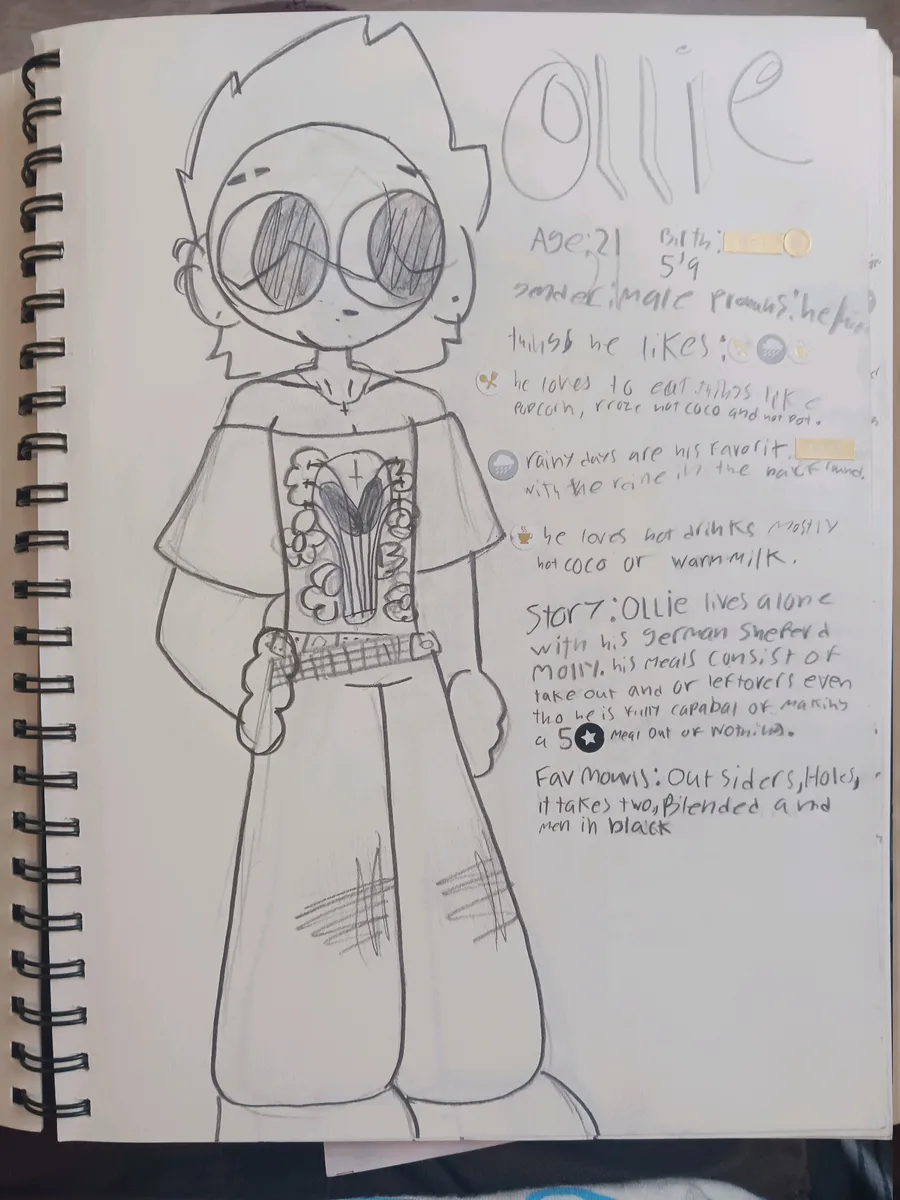 Ollie
Age:21 Birth:
5'9
gender:male pronouns:he/him
things he likes:
he loves to eat things like
popcorn, froze hot coco and hot pot.
rainy days are his favorit.
with the raine in the background.
he loves hot drinks mostly
hot coco or warm milk.
Story:Ollie lives alone
with his german sheperd
Molly. his meals consist of
take out and or leftovers even
tho he is fully capabal of making
a 5 meal out of nothing.
Fav Movies: Outsiders, Holes,
it takes two, Blended and
men in black